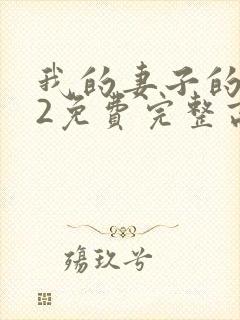 我的妻子的
2免费完整高
殇玖兮